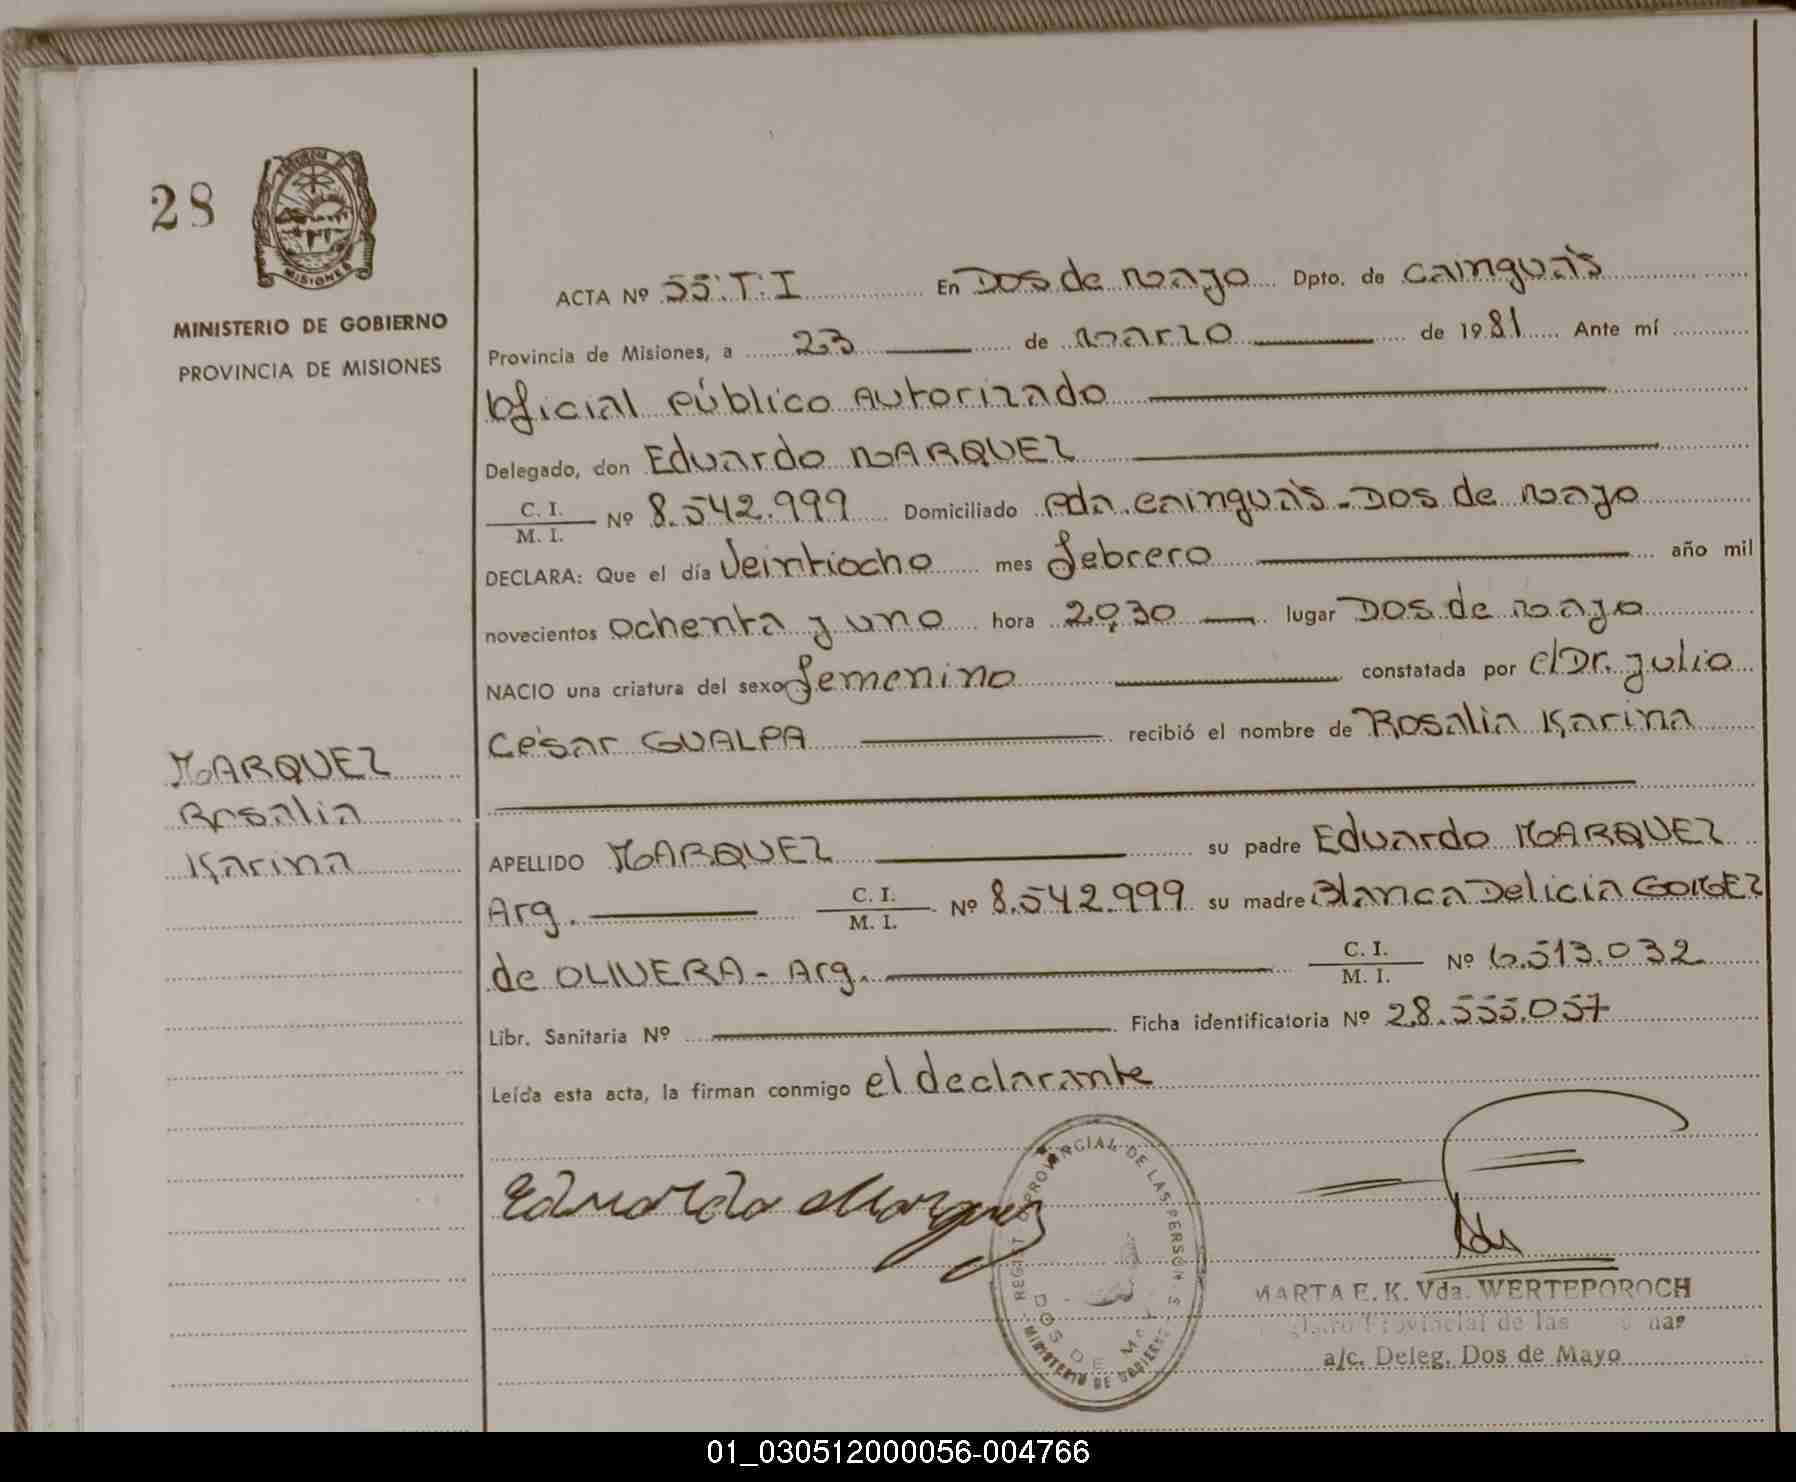 28
PROVINCIA DE
MISIONES
MINISTERIO DE GOBIERNO
PROVINCIA DE MISIONES
MARQUEZ
Rosalia
Karina
ACTA Nº 55.T.I En Dos de Mayo Dpto. de Cainguás
Provincia de Misiones, a 23 de Marzo de 1981 Ante mí
Oficial Público Autorizado
Delegado, don Eduardo MARQUEZ
C. I.
M. I. Nº 8.542.999 Domiciliado Pda. Cainguás - Dos de Mayo
DECLARA: Que el día Veintiocho mes febrero año mil
novecientos Ochenta y uno hora 20,30 lugar Dos de Mayo
NACIO una criatura del sexo femenino constatada por el Dr. Julio
César GUALPA recibió el nombre de Rosalia Karina
APELLIDO MARQUEZ su padre Eduardo MARQUEZ
Arg. C. I.
M. I. Nº 8.542.999 su madre Blanca Delicia GOMEZ
de OLIVERA - Arg. C. I.
M. I. Nº 6.513.032
Libr. Sanitaria Nº Ficha identificatoria Nº 28.555.057
Leída esta acta, la firman conmigo el declarante
Eduardo Marquez
PROVINCIAL DE LAS PERSONAS
DOS DE MAYO
MINISTERIO DE GOBIERNO
MARTA E. K. Vda. WERTEPOROCH
Provincial de las
a/c. Deleg. Dos de Mayo
01_030512000056-004766